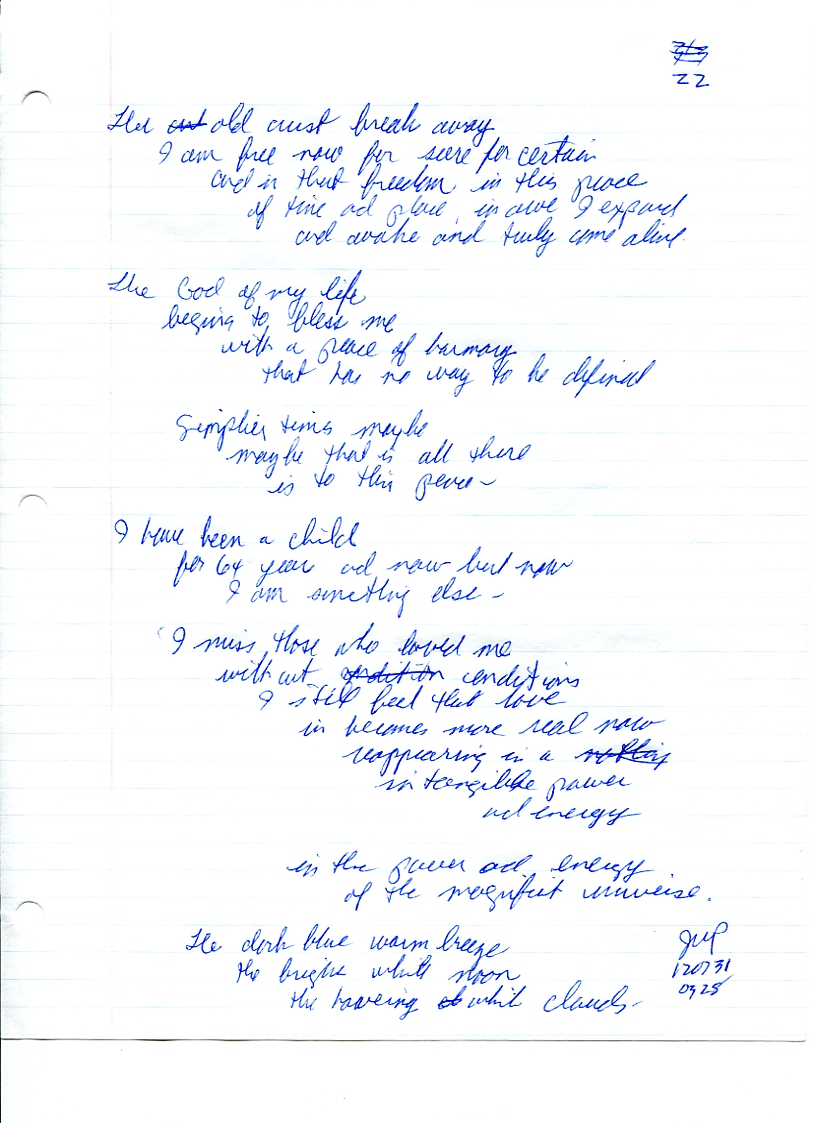 22
The old crust break away
I am free now for sure for certain
and in that freedom in this peace
of time ad place, in awe I expand
and awake and truly come alive.
The God of my life
begins to bless me
with a peace of harmony
that has no way to be defined
Simplier times maybe
maybe that is all there
is to this peace-
I have been a child
for 64 years ad now but now
I am something else -
I miss those who loved me
without condition conditions
I still feel that love
in becomes more real now
reappearing in a nothing
intangible power
ad energy
in the power ad energy
of the magnificit universe.
The dark blue warm breeze
the bright white moon
the hovering white clouds-
JWP
120731
0928